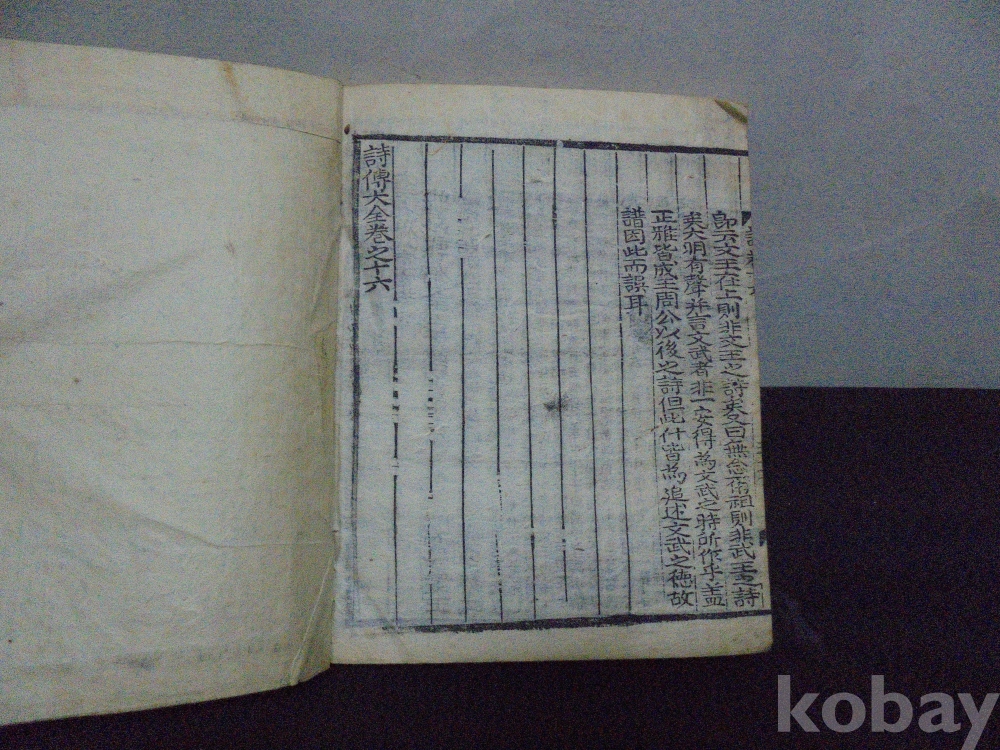 即云文王在上則非文王之詩矣又曰無念爾祖則非武王之詩
矣大明有聲并言文武者非一安得為文武之時所作乎盖
正雅皆成王周公以後之詩但此什皆為追述文武之德故
譜因此而誤耳
詩傳大全卷之十六
kobay